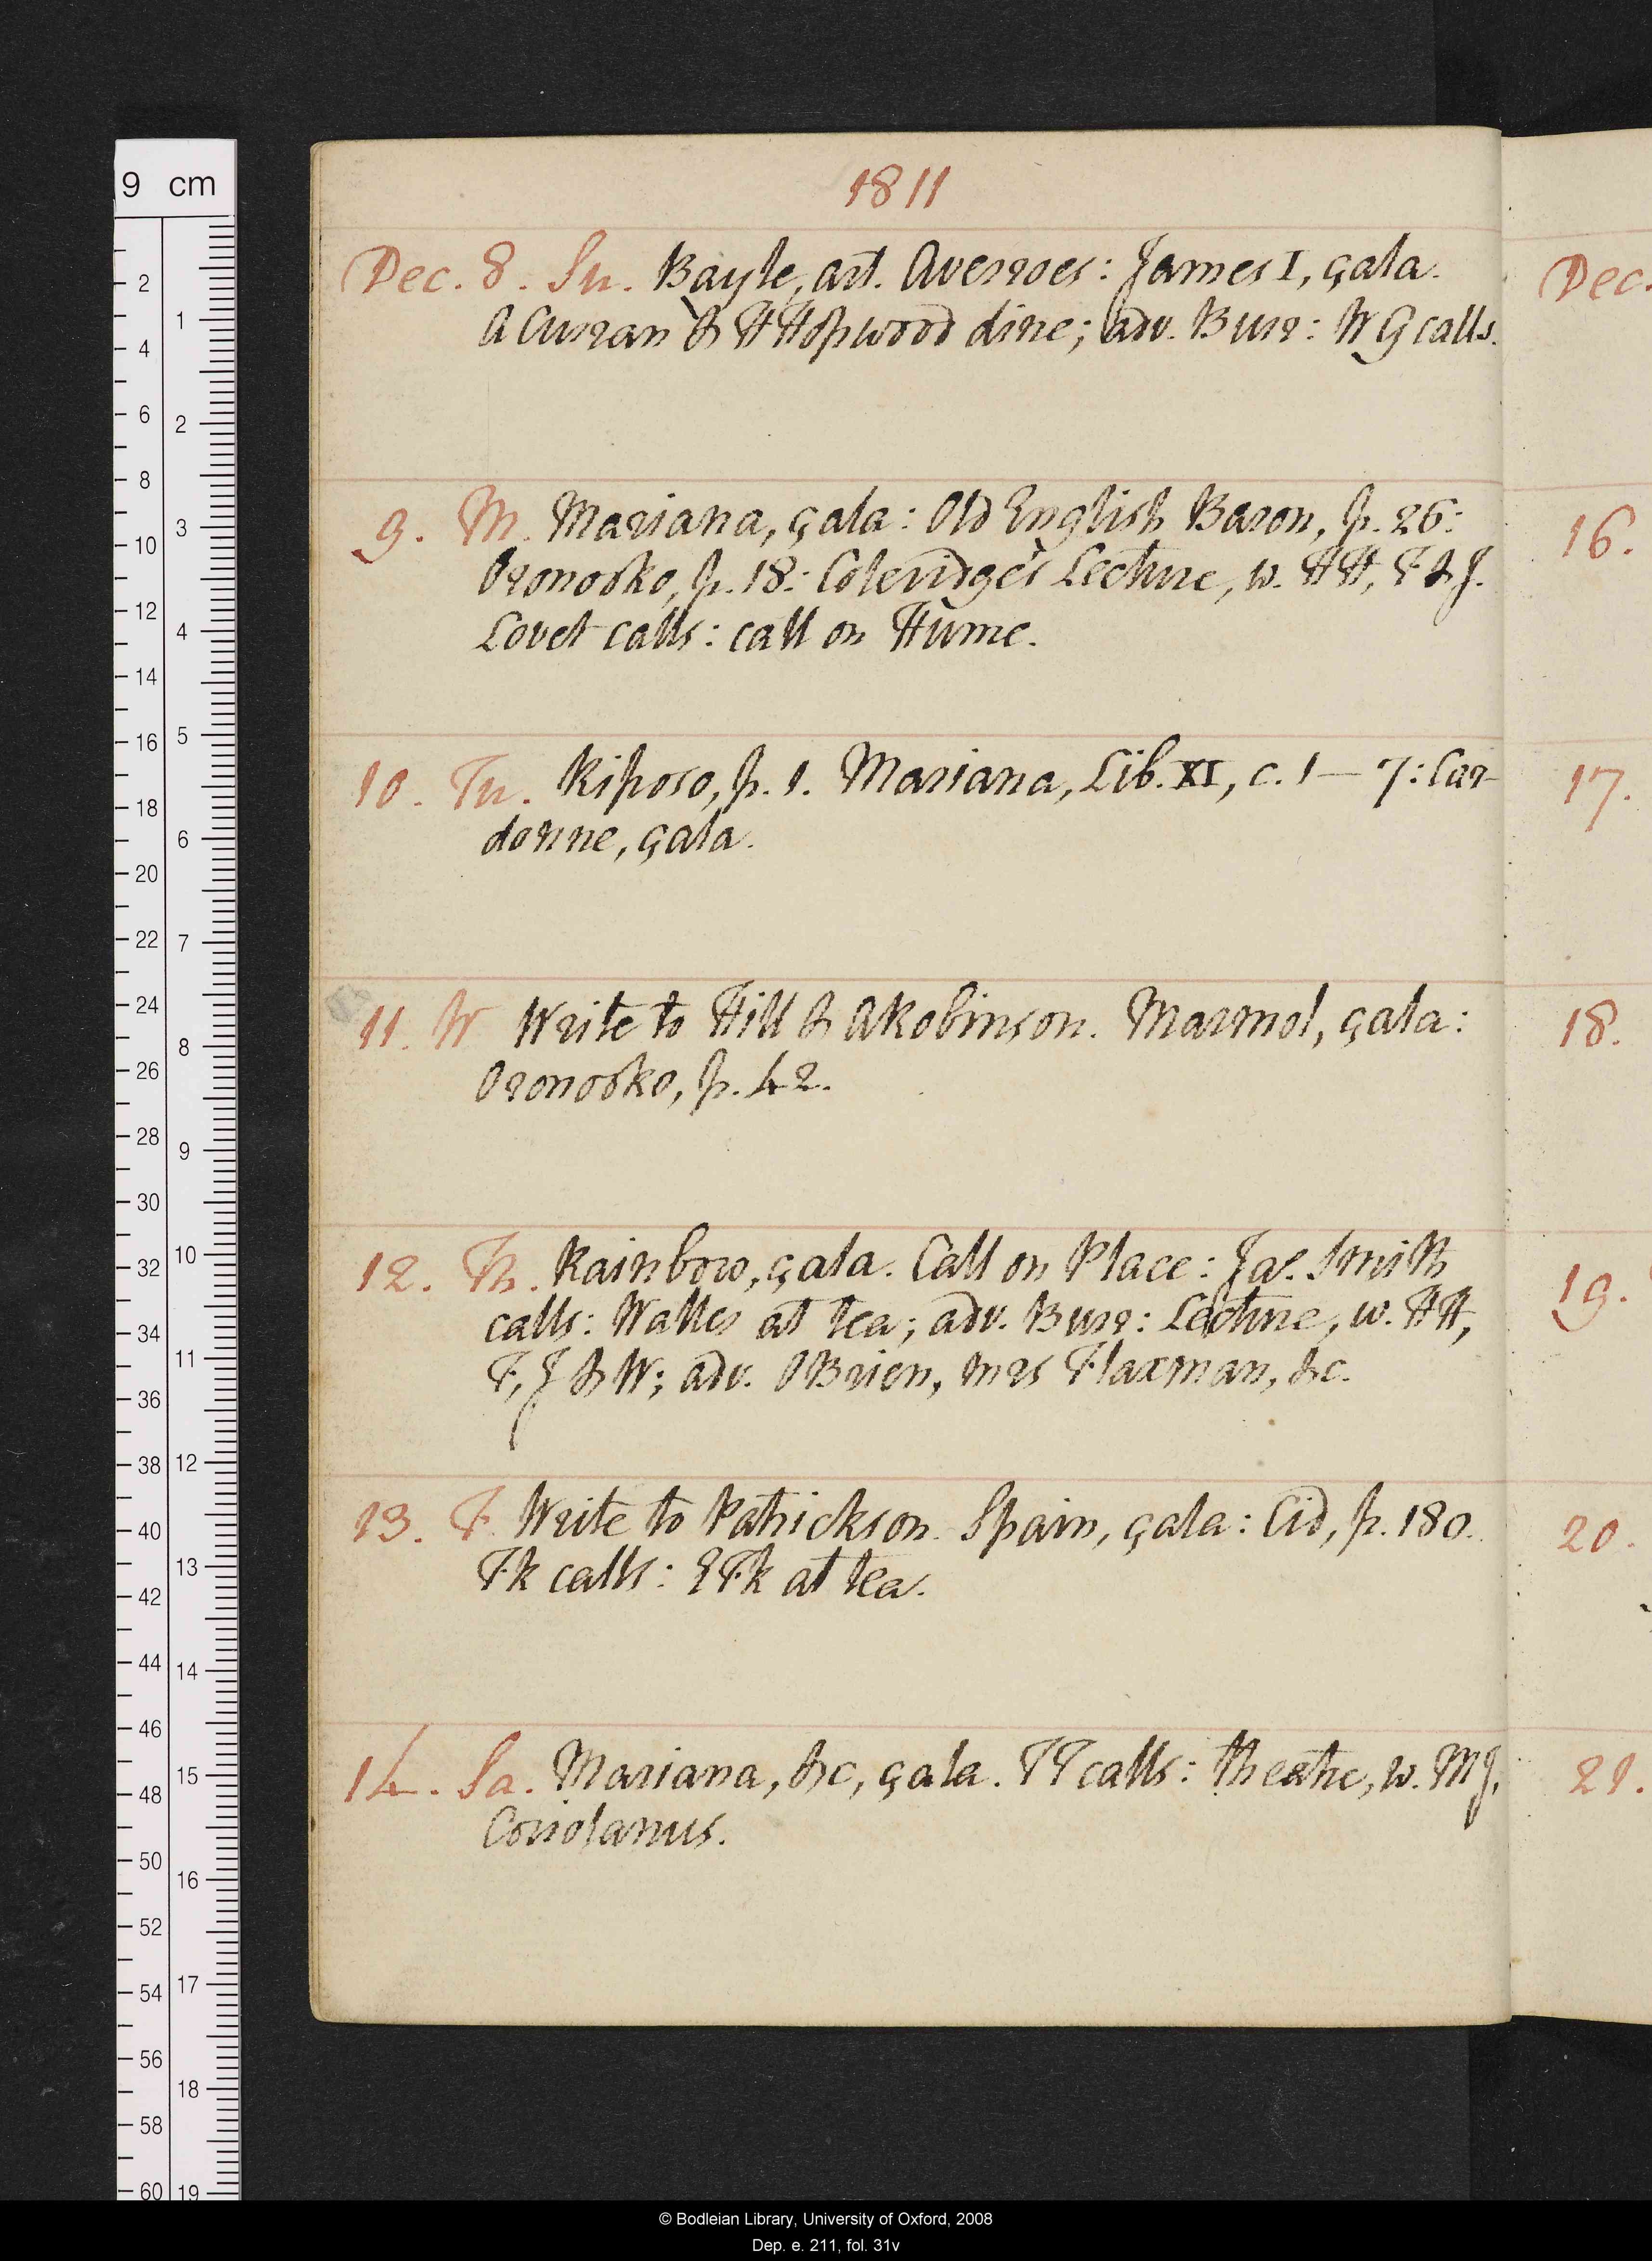 1811
Dec. 8. Su. Bayle, art. Averroes: James I, çala.
A Curran & H Hopwood dine; adv. Burr: W G calls.
9. M. Mariana, çala: Old English Baron, p. 26:
Oronooko, p. 18: Coleridge's Lecture, w. HH, F & J.
Lovet calls: call on Hume.
10. Tu. Riposo, p. 1. Mariana, Lib. XI, c. 1 — 7: Car-
donne, çala.
11. W Write to Hill & A Robinson. Marmol, çala:
Oronooko, p. 42.
12. Th. Rainbow, çala. Call on Place: Jas. Smith
calls: Walles at tea; adv. Burr: Lecture, w. HH,
F, J & W; adv. OBrien, mrs Flaxman, &c.
13. F. Write to Patrickson. Spain, çala: Cid, p. 180.
Fk calls: E Fk at tea.
14. Sa. Mariana, &c, çala. TT calls: theatre, w. MJ,
Coriolanus.
Dec.
16.
17.
18.
19.
20.
21.
9 cm
2
4
6
8
10
12
14
16
18
20
22
24
26
28
30
32
34
36
38
40
42
44
46
48
50
52
54
56
58
60
1
2
3
4
5
6
7
8
9
10
11
12
13
14
15
16
17
18
19
© Bodleian Library, University of Oxford, 2008
Dep. e. 211, fol. 31v